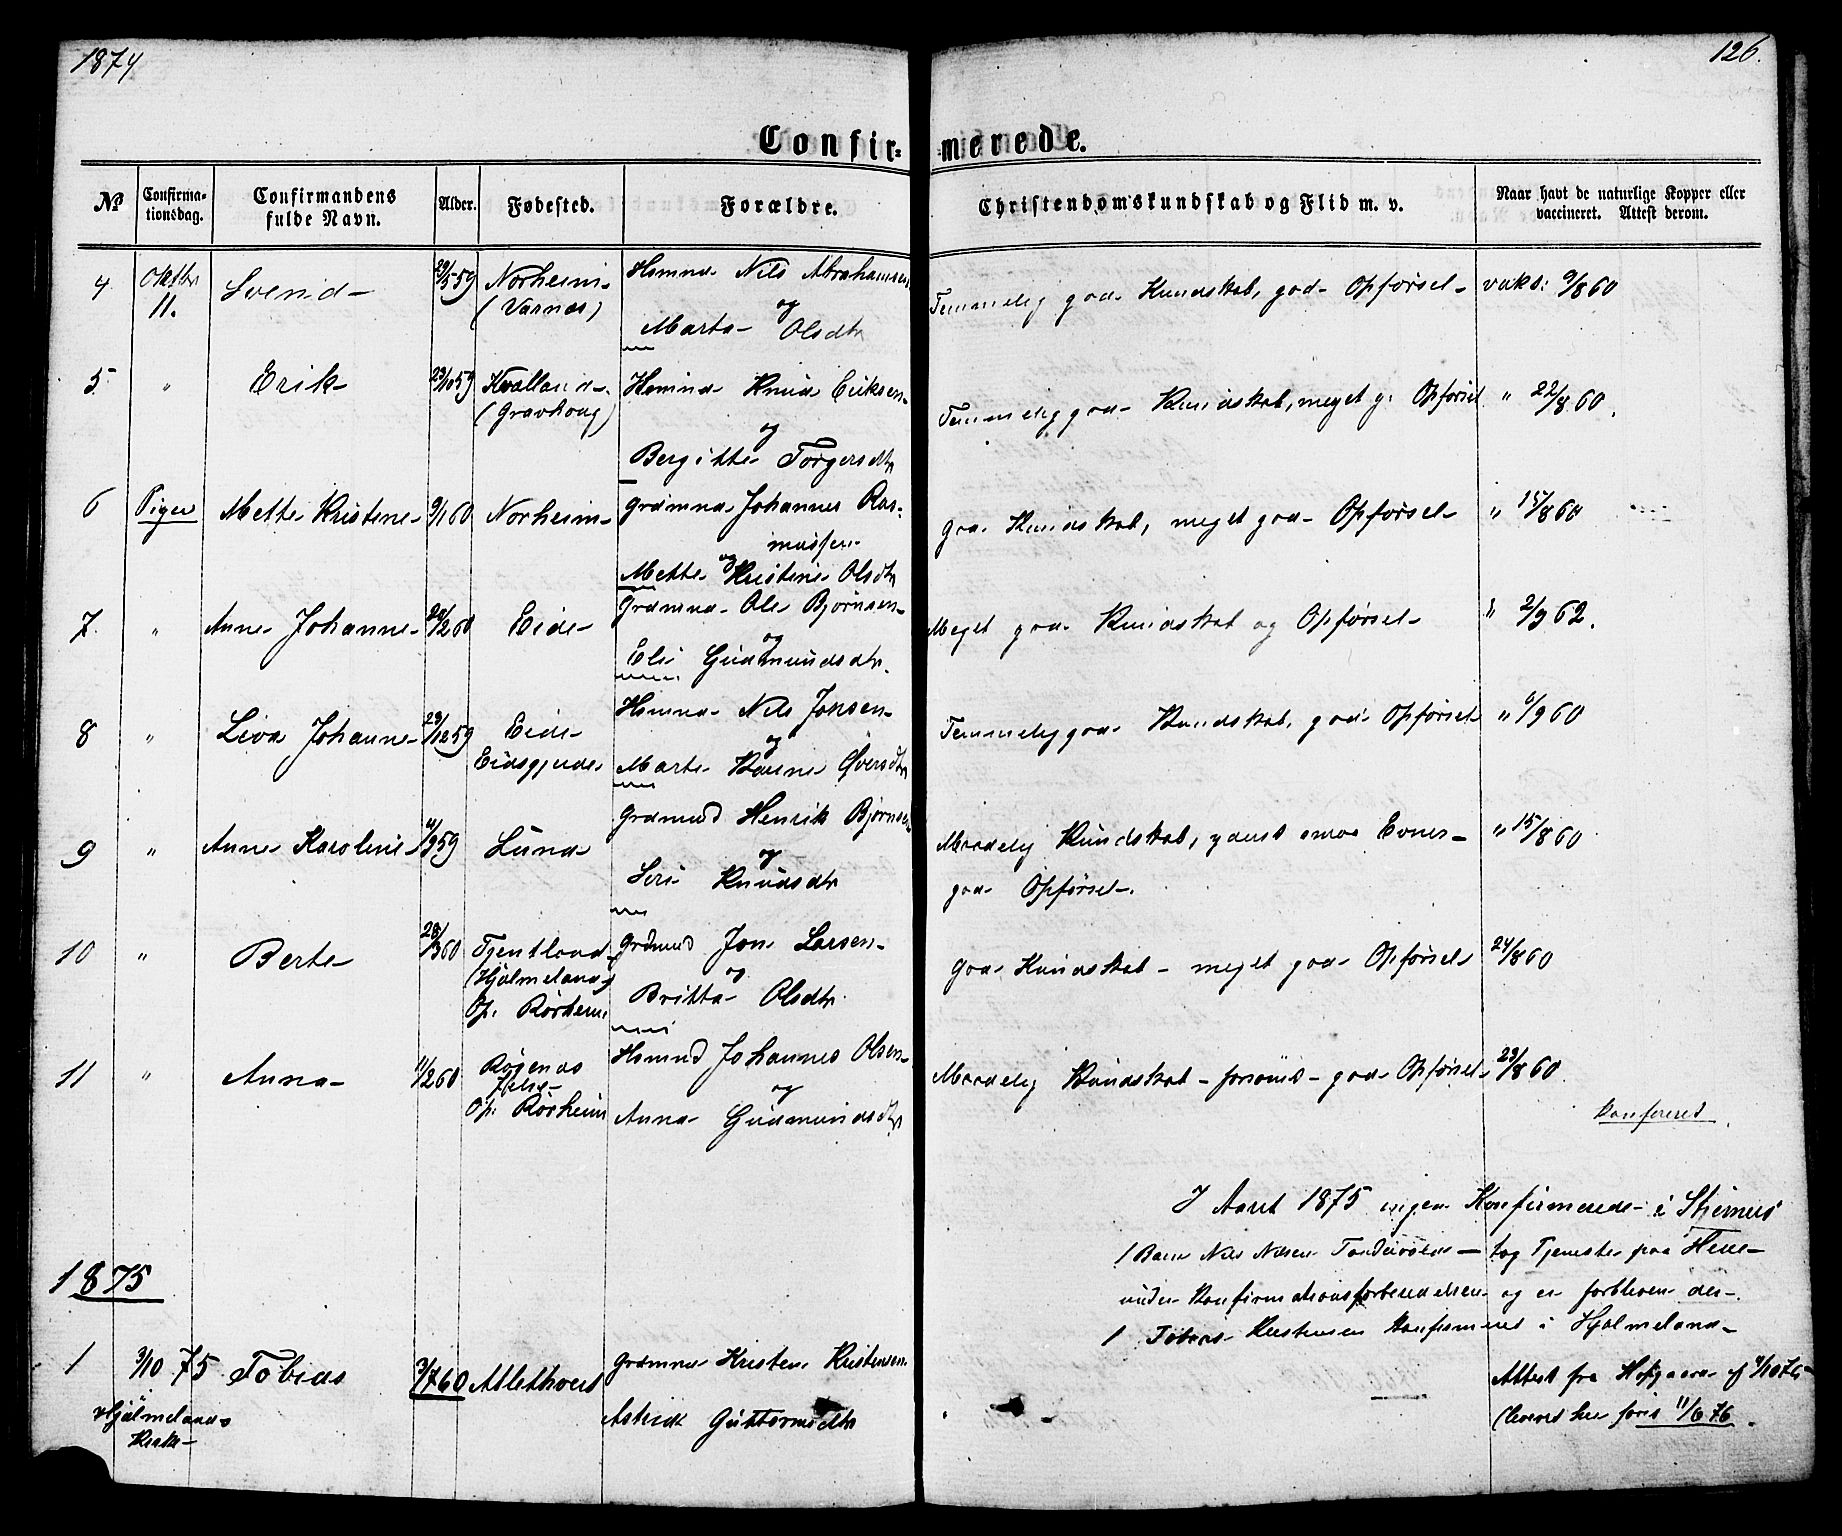 1874
126.
Confir-
merede.
No
Confirma-
tionsdag.
Confirmandens
fulde Navn.
Alder.
Fødested.
Forældre.
Christendomskundskab og Flid m. v.
Naar havt de naturlige Kopper eller
vaccineret. Attest derom.
4 Oktbr 11. Svend 29/5 59 Norheim (Varnes) Hsmnd Nils Abrahamsen
og
Marta Olsdtr
Temmelig god Kundskab, god Opførsel vaks: 9/8 60
5. " Erik 23/10 59 Kvalland (Gravhaug) Hsmnd Knud Eriksen
og
Bergitte Torgersdtr
Temmelig god Kundskab, meget g. Opførsel " 22/8 60.
6 Piger Mette Kristine 9/1 60 Norheim Grdmnd Johannes Ras-
mussen
og
Mette Kristine Olsdtr
god Kundskab, meget god Opførsel " 15/8 60
7. " Anne Johanne 22/2 60 Eide Grdmnd Ole Bjørnsen
og
Eli Gudmundsdtr.
Meget god Kundskab og Opførsel " 2/9 62.
8 " Liva Johanne 29/12 59 Eide Eidsgjerde Hsmnd Nils Jonsen
og
Marte Karine Øversdtr
Temmelig god Kundskab, god Opførsel " 6/9 60
9 " Anne Karoline 11/9 59 Lund Grdmnd Henrik Bjørnsen
og
Siri Knudsdtr
Maadelig Kundskab, yderst smaa Evner
god Opførsel. " 15/8 60
10 " Berte 28/3 60 Tjentland
(Hjelmeland)
Op. Rørheim
Grdmnd Jon Larsen
og
Britta Olsdtr.
God Kundskab – meget god Opførsel 24/8 60
11 " Anna 11/2 60
Op. Rørheim
Hsmnd Johannes Olsen
og
Anna Gudmundsdtr
Maadelig Kundskab – forsømt – god Opførsel 23/8 60.
Konfereret.
I Aaret 1875 ingen Konfirmerede i
1 Barn Nils Nilsen – tog Tjeneste paa
under Konfirmationsforberedelsen og er forbleven der.
1 Tobias Kristensen konfirmeret i Hjelmeland
1875
1 3/10 75 Tobias 3/7 60 Atlethveit Grdmnd Kristen Kristensen
Hjelmelands
Kirke
Astrid Guttormsdtr
Attest fra af 4/10 75
leveret her først 11/6 76.